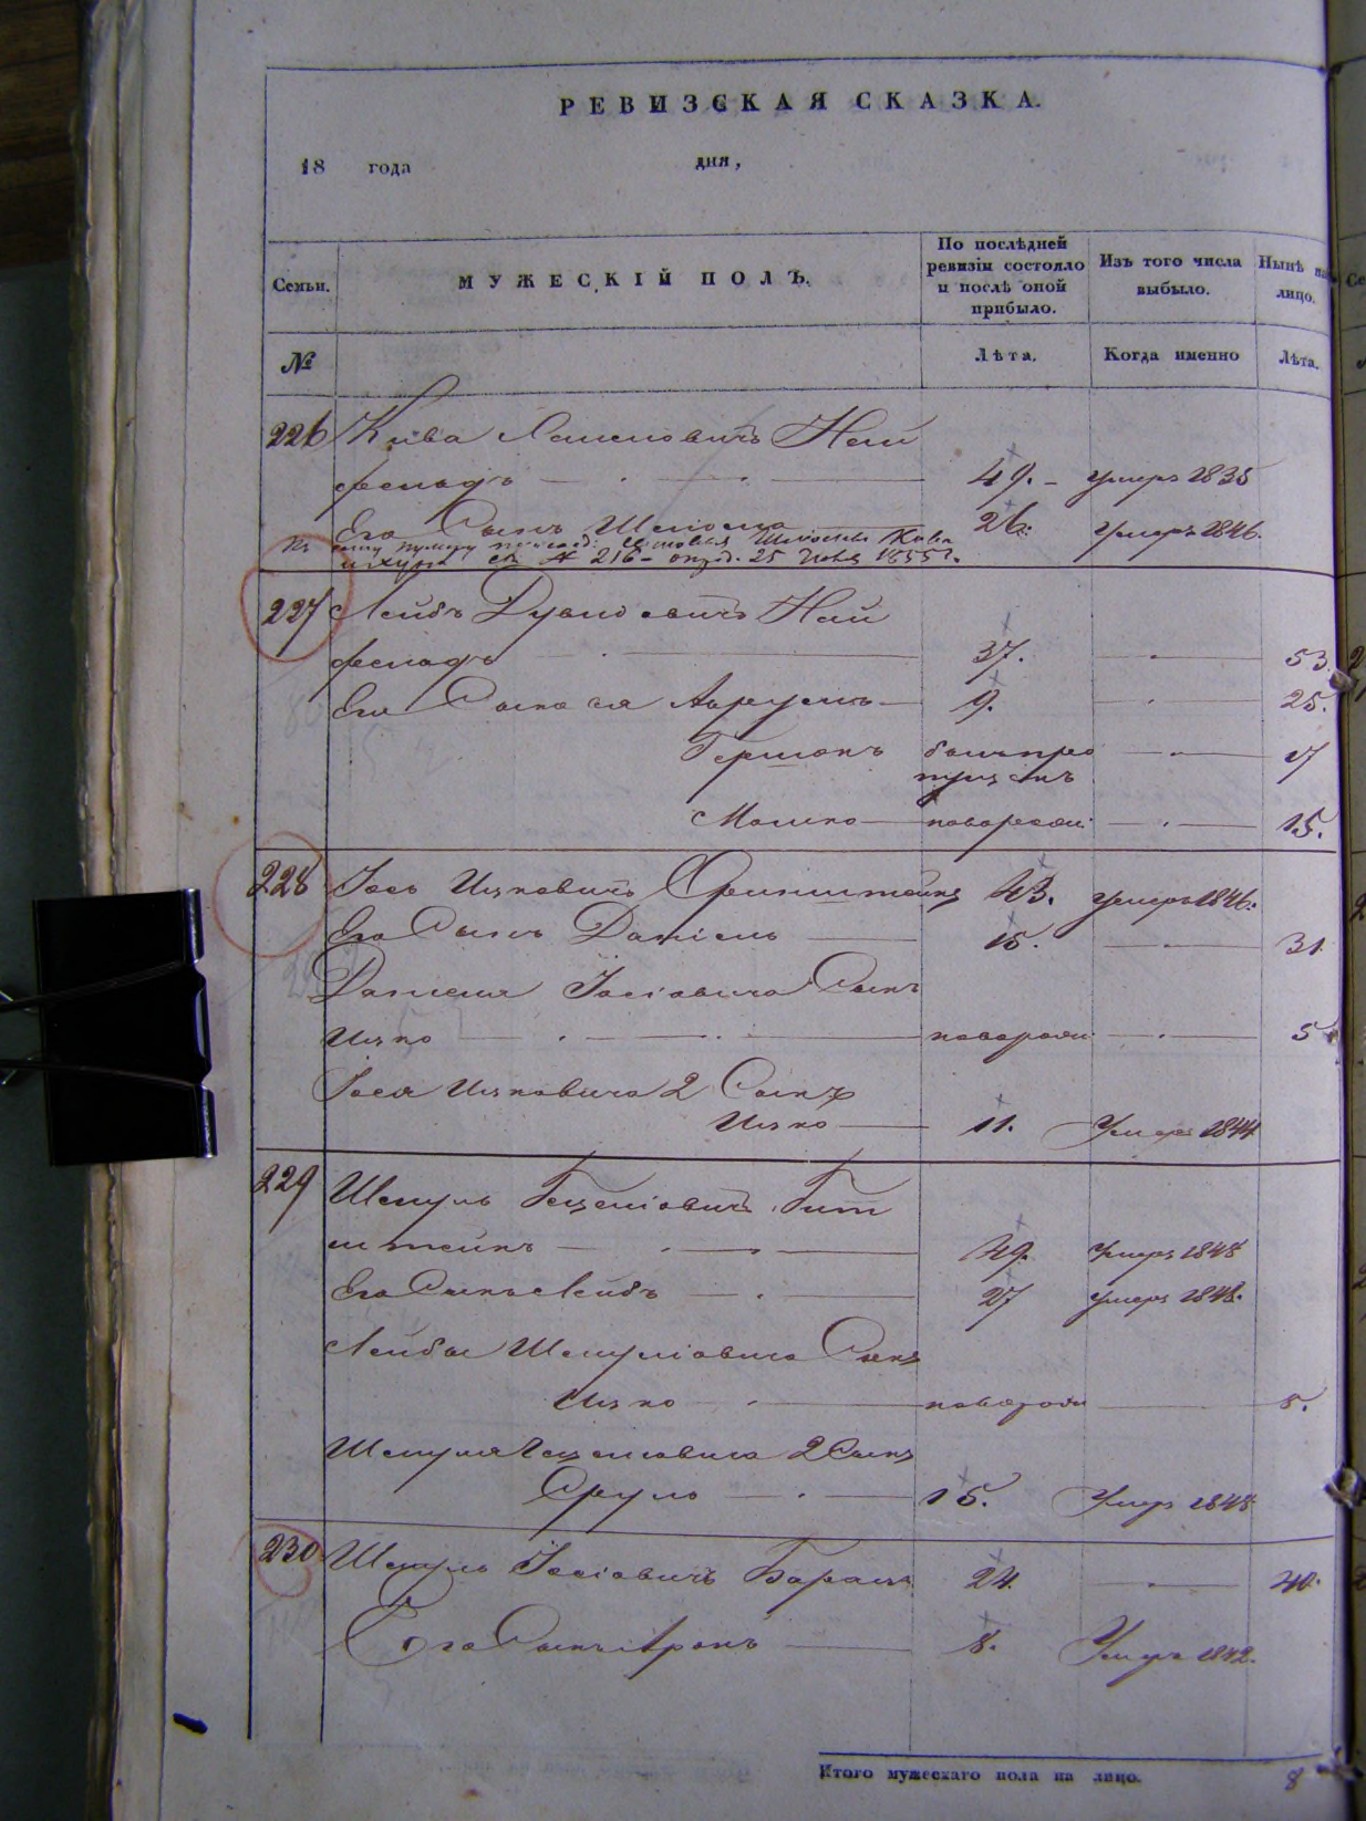 РЕВИЗСКАЯ СКАЗКА.
18 года дня,
Семьи.
МУЖЕСКІЙ ПОЛЪ.
По послѣдней ревизіи состояло и послѣ оной прибыло.
Изъ того числа выбыло.
Нынѣ на лицо.
№
Лѣта.
Когда именно
Лѣта.
226 Кива Най
фельдъ 49. умеръ 1835
Его Сынъ Шліома 26. умеръ 1846.
№ 216 25 1855
227 Лейбъ Дувидовичъ Най
фельдъ 37. 53.
Его Сыновья 9. 25.
Гершонъ былъ про 17
пущенъ
Мошко новорожд 15.
228 Іось Ицковичъ 43. умеръ 1846.
Его Сынъ Даніель 15. 31
Даніеля Іосіовича Сынъ
Ицко новорожд 5
Іося Ицковича 2 Сынъ
Ицко 11. Умеръ 1844
229 Шмуль Гецеліовичъ Гит
штейнъ 49. Умеръ 1848
Его Сынъ Лейбъ 27 умеръ 1848.
Лейбы Шмуліовича Сынъ
Ицко новорожд 8.
Шмуля Гецеліовича 2 Сынъ
Сруль 15. Умеръ 1848
230 Шмуль Іосіовичъ 24. 40.
Его Сынъ Аронъ 8. Умеръ 1842.
Итого мужескаго пола на лицо. 8